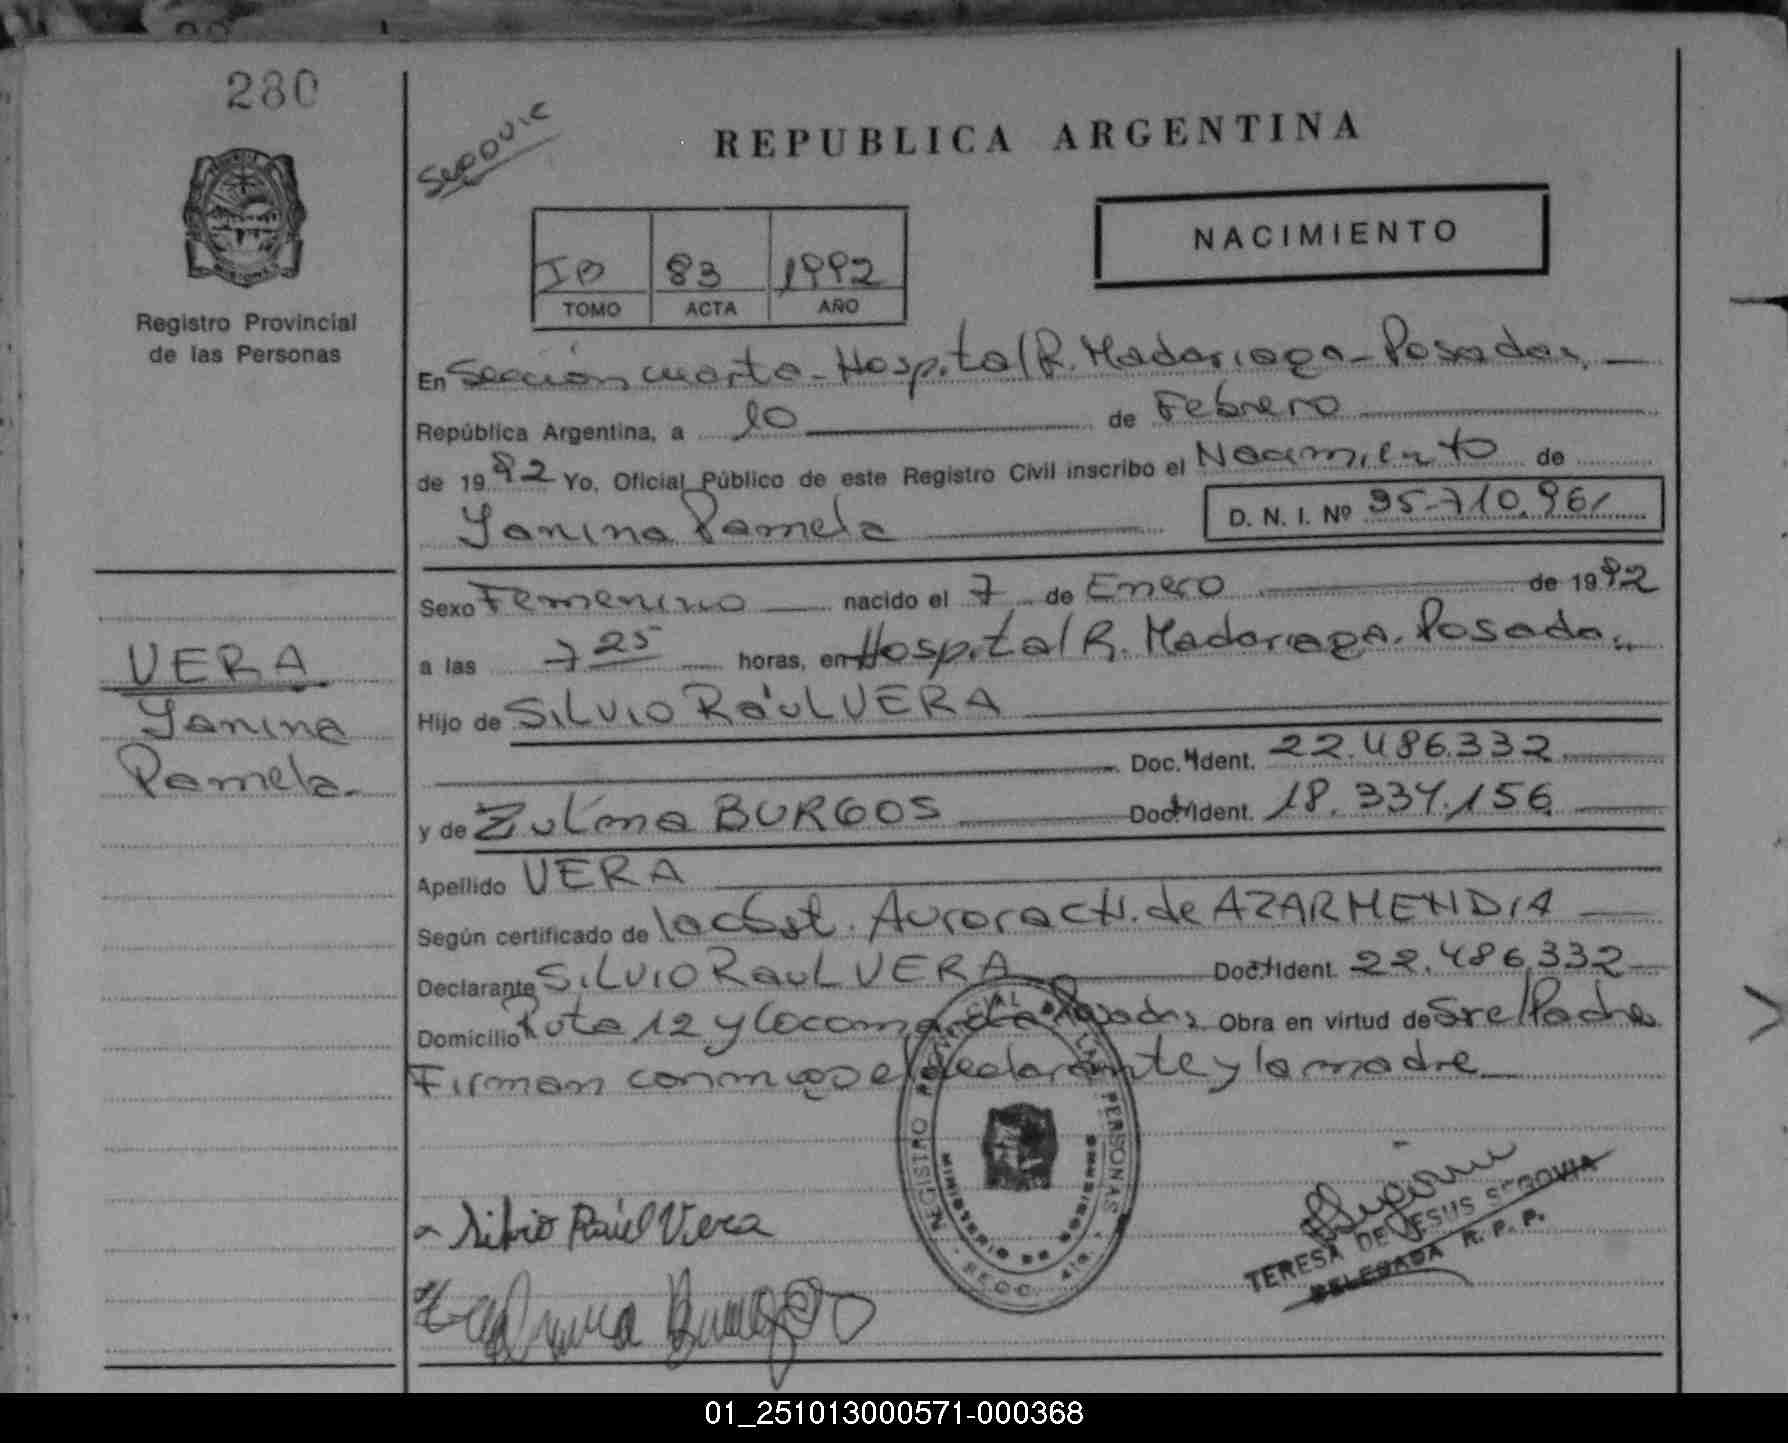 280
REPUBLICA ARGENTINA
NACIMIENTO
83 1992
TOMO ACTA AÑO
Registro Provincial
de las Personas
En Sección cuarta - Hospital R. Madariaga - Posadas
República Argentina, a 10 de Febrero
de 1992 Yo, Oficial Público de este Registro Civil inscribo el Nacimiento de
Yanina Pamela D. N. I. Nº 35.710.961
Sexo Femenino nacido el 7 de Enero de 1992
a las 7 25 horas, en Hospital R. Madariaga. Posadas
VERA
Yanina
Pamela
Hijo de SILVIO Raúl VERA
Doc. Ident. 22.486.332
y de Zulma BURGOS Doc. Ident. 18.334.156
Apellido VERA
Según certificado de la obst. Aurora CH. de AZARMENDIA
Declarante SILVIO Raul VERA Doc. Ident. 22.486.332
Domicilio Ruta 12 y Posadas Obra en virtud de Ser el Padre
Firman conmigo el declarante y la madre
REGISTRO PROVINCIAL DE LAS PERSONAS
MINISTERIO DE GOBIERNO
SECC. 4ta.
Silvio Raúl Vera
TERESA DE JESUS SEGOVIA
DELEGADA R. P. P.
01_251013000571-000368